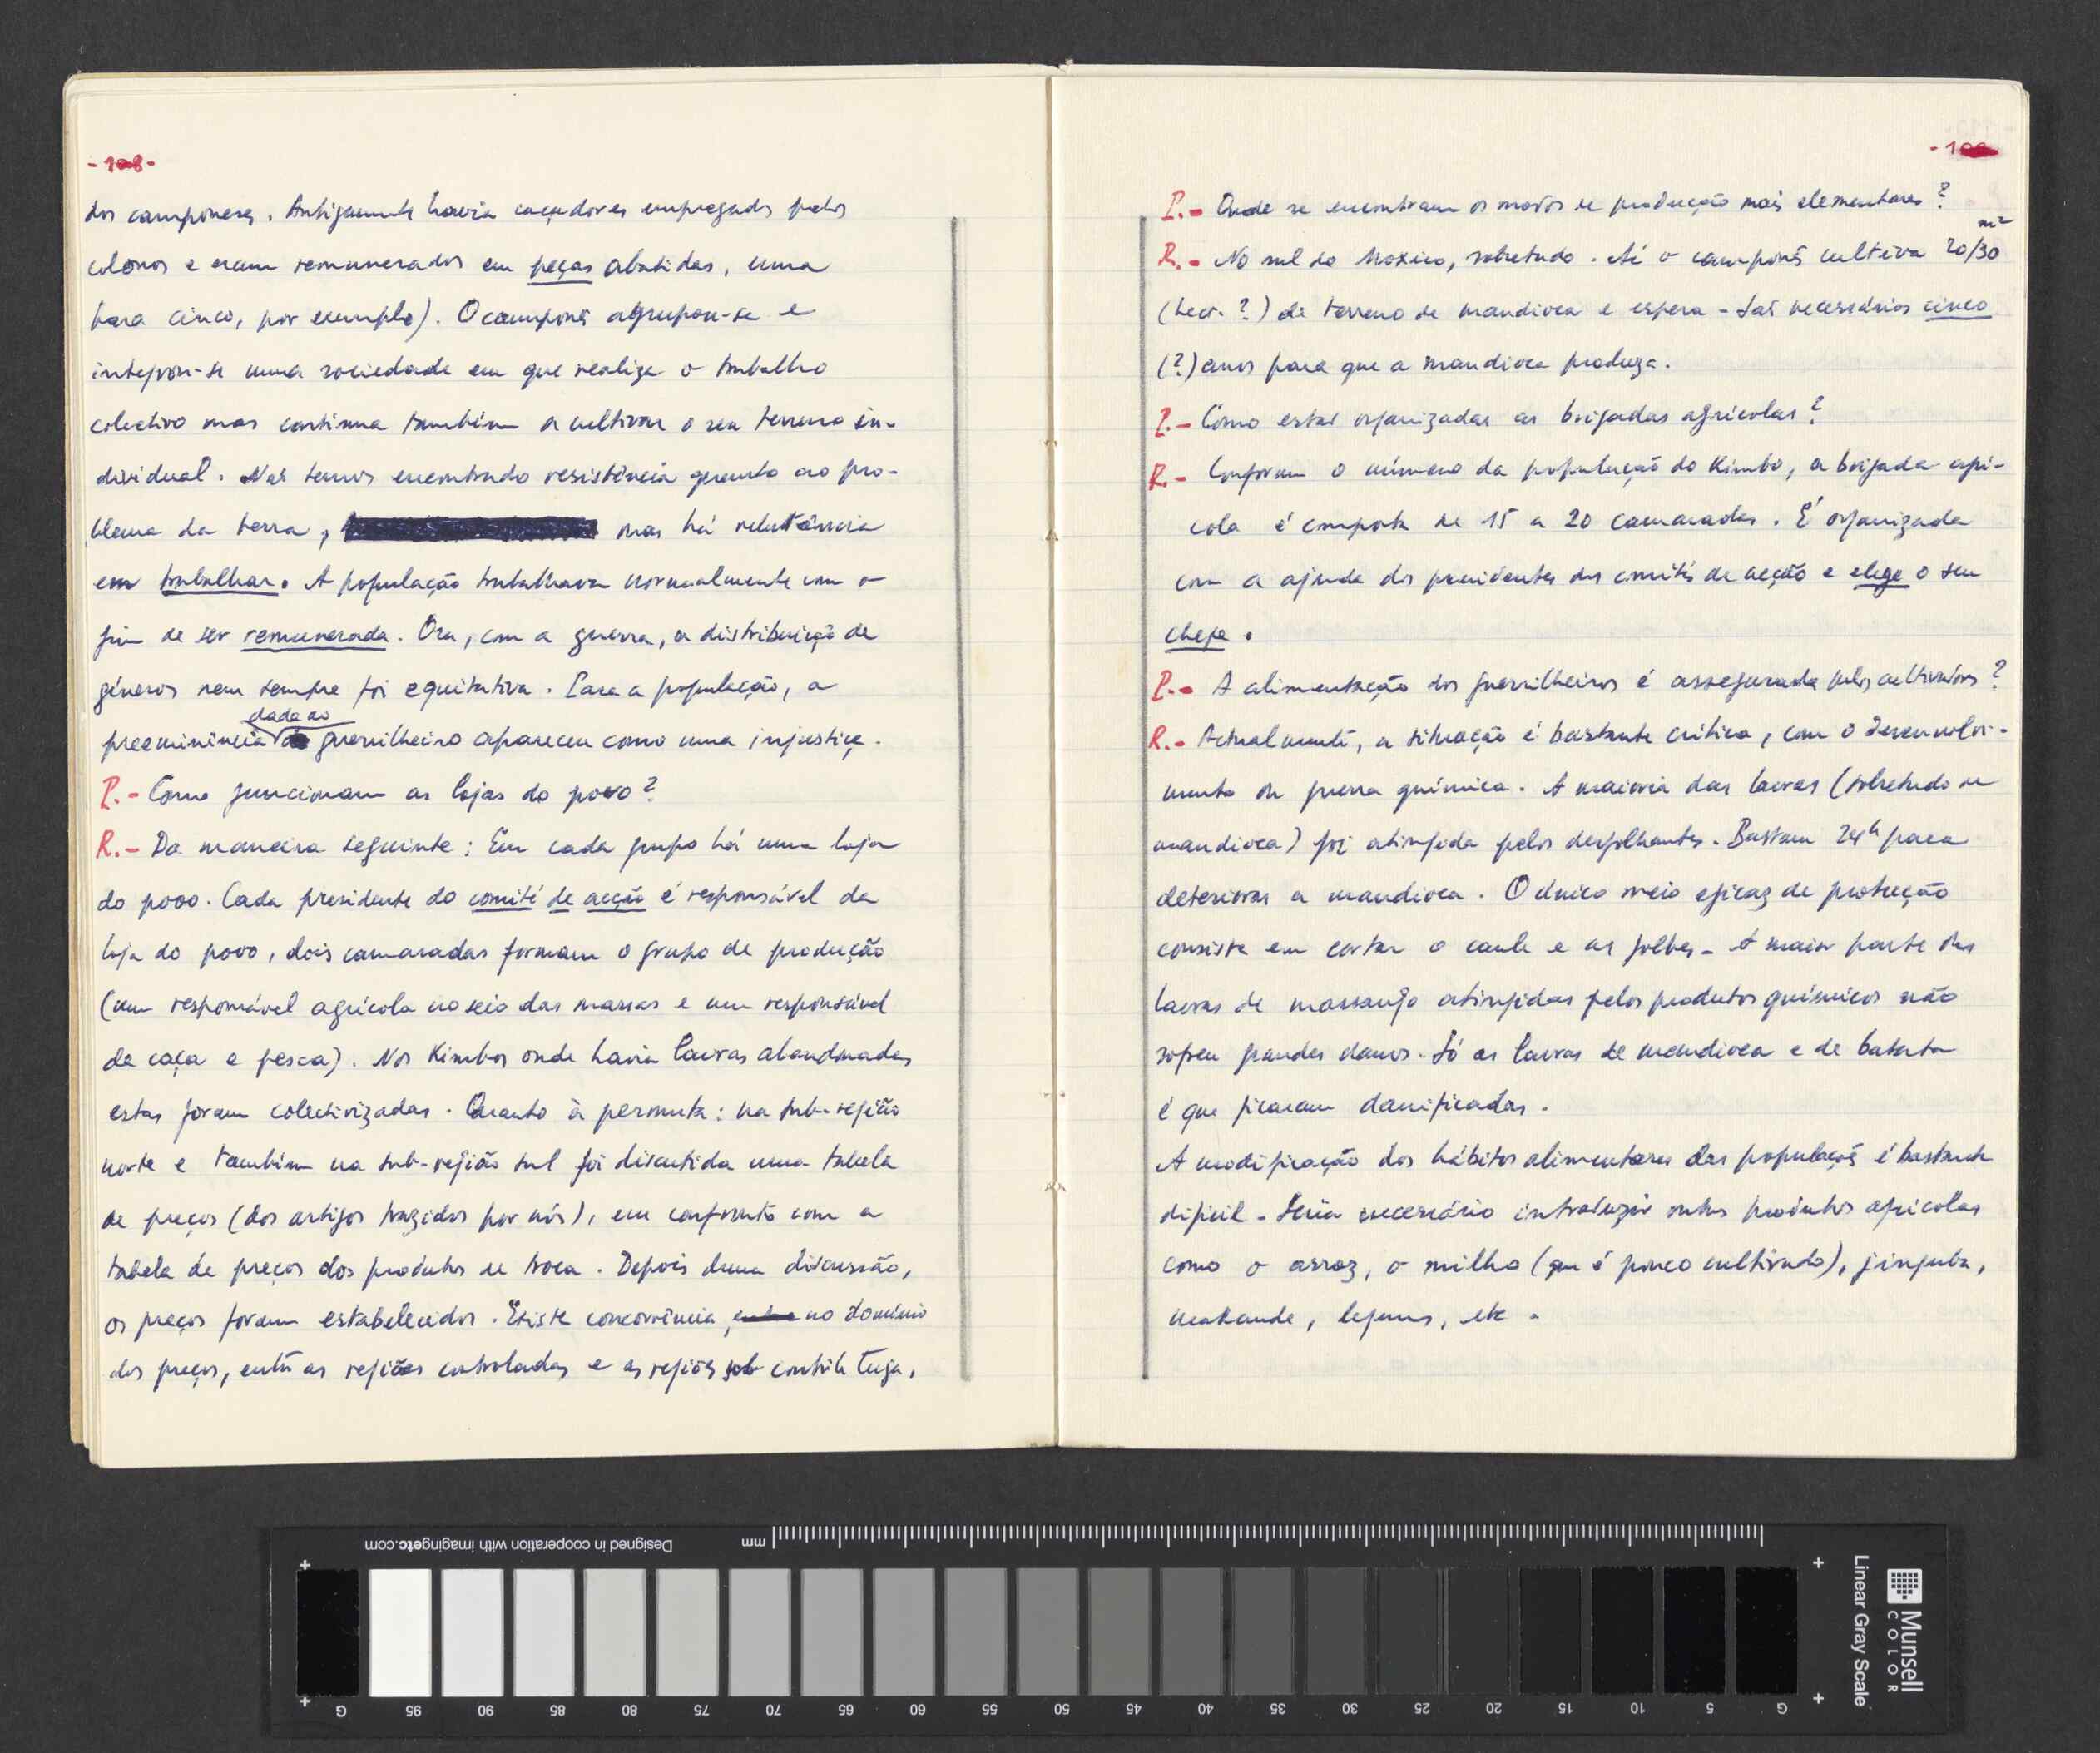 - 108 -
dos camponeses. Antigamente havia caçadores empregados pelos
colonos e eram remunerados em peças abatidas, uma
para cinco, por exemplo). O camponês agrupou-se e
integrou-se numa sociedade em que realiza o trabalho
colectivo mas continua também a cultivar o seu terreno in-
dividual. Não temos encontrado resistência quanto ao pro-
blema da terra, mas há relutância
em trabalhar. A população trabalhava normalmente com o
fim de ser remunerada. Ora, com a guerra, a distribuição de
géneros nem sempre foi equitativa. Para a população, a
dada ao
preeminência guerrilheiro apareceu como uma injustiça.
P.- Como funcionam as lojas do povo?
R.- Da maneira seguinte: Em cada grupo há uma loja
do povo. Cada presidente do comité de acção é responsável da
loja do povo, dois camaradas formam o grupo de produção
(um responsável agrícola no seio das massas e um responsável
de caça e pesca). Nos Kimbos onde havia lavras abandonadas
estas foram colectivizadas. Quanto à permuta: na sub-região
norte e também na sub-região sul foi discutida uma tabela
de preços (dos artigos trazidos por nós), em confronto com a
tabela de preços dos produtos de troca. Depois duma discussão,
os preços foram estabelecidos. Existe concorrência, entre no domínio
dos preços, entre as regiões controladas e as regiões sob contrôle tuga.
- 10
P.- Onde se encontram os modos de producção mais elementares?
m²
R.- No sul do Moxico, sobretudo. Aí o camponês cultiva 20/30
(hect. ?) de terreno de mandioca e espera - São necessários cinco
(?) anos para que a mandioca produza.
P.- Como estão organizadas as brigadas agrícolas?
R.- Conforme o número da população do Kimbo, a brigada agrí-
cola é composta de 15 a 20 camaradas. É organizada
com a ajuda dos presidentes dos comités de acção e elege o seu
chefe.
P.- A alimentação dos guerrilheiros é assegurada pelos cultivadores?
R.- Actualmente, a situação é bastante crítica, com o desenvolvi-
mento da guerra química. A maioria das lavras (sobretudo de
mandioca) foi atingida pelos desfolhantes. Bastam 24h para
deteriorar a mandioca. O único meio eficaz de protecção
consiste em cortar o caule e as folhas - A maior parte das
lavras de massango atingidas pelos produtos químicos não
sofreu grandes danos. Só as lavras de mandioca e de batata
é que ficaram danificadas.
A modificação dos hábitos alimentares das populações é bastante
difícil - Seria necessário introduzir outros produtos agrícolas
como o arroz, o milho (que é pouco cultivado), jinguba,
makunde, legumes, etc.
Designed in cooperation with imagingetc.com
mm
G 95 90 85 80 75 70 65 60 55 50 45 40 35 30 25 20 15 10 5 G
Munsell
COLOR
Linear Gray Scale